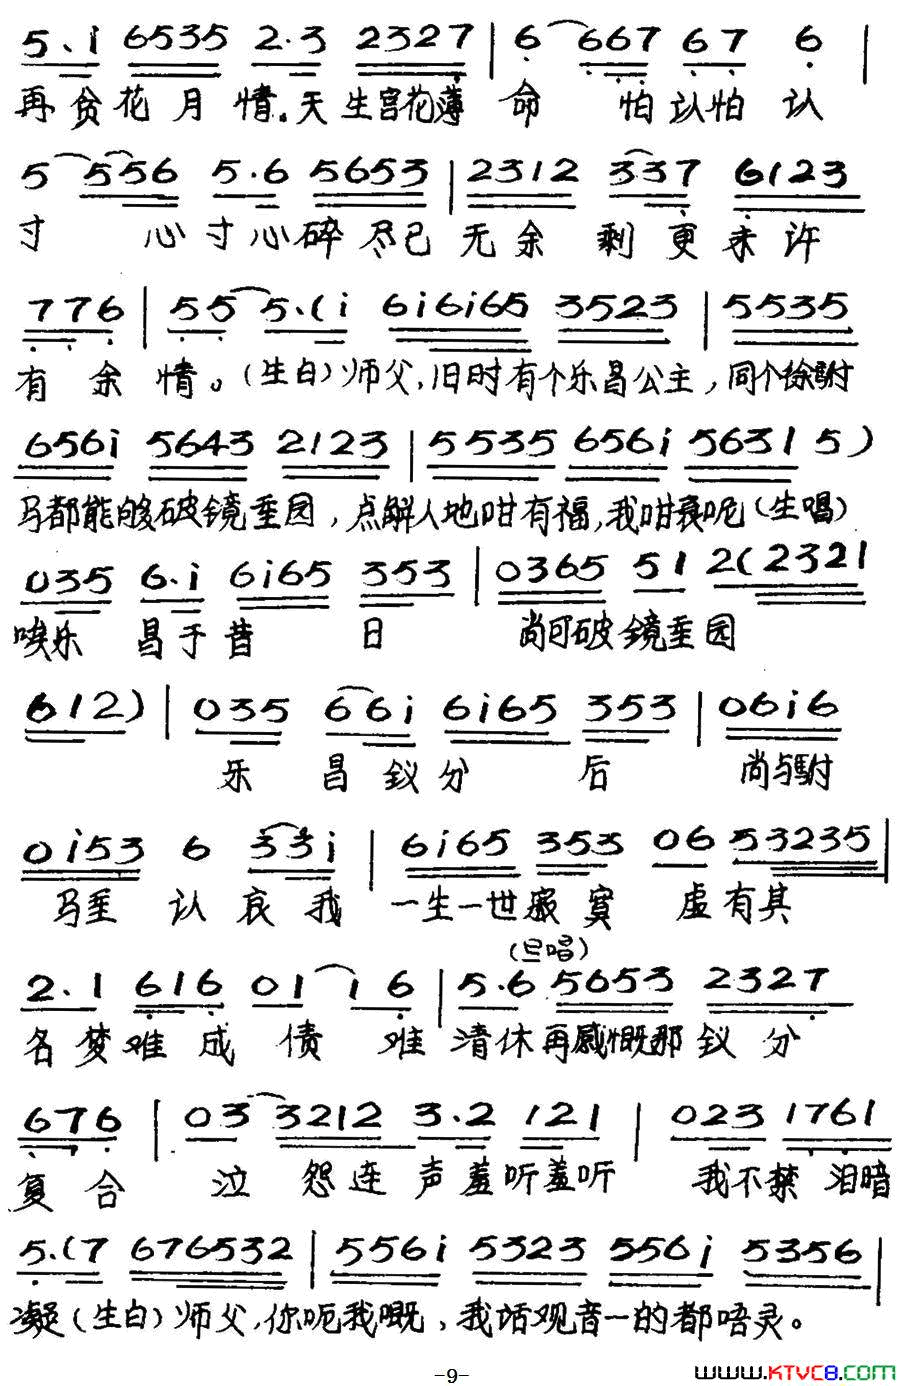 5·i 6535 2·3 2327 | 6 667 67 6 |
再贪花月情。天生宫花薄命 怕认怕认
5 556 5·6 5653 | 2312 337 6123
寸 心寸心碎尽已无余剩更未许
776 | 55 5·(i 6i6i65 3523 | 5535
有余情。(生白)师父,旧时有个乐昌公主,同个徐駙
656i 5643 2123 | 5535 656i 5631 5)
马都能够破镜重园,点解人地咁有福,我咁衰呢(生唱)
035 6·i 6i65 353 | 0365 51 2(2321
唉乐昌于昔日 尚可破镜重园
612) | 035 66i 6i65 353 | 06i6
乐昌钗分后 尚与駙
0i53 6 33i | 6i65 353 06 53235 |
马重认哀我一生一世寂寞虚有其
(旦唱)
2·1 616 01 1 6 | 5·6 5653 2327
名梦难成债难清休再感慨那钗分
676 | 03 3212 3·2 121 | 023 1761
复合 泣怨连声羞听羞听 我不禁泪暗
5·(7 676532 | 556i 5323 556i 5356 |
凝(生白)师父,你呃我嘅,我话观音一的都唔灵。
-9-
WWW.KTVC8.COM